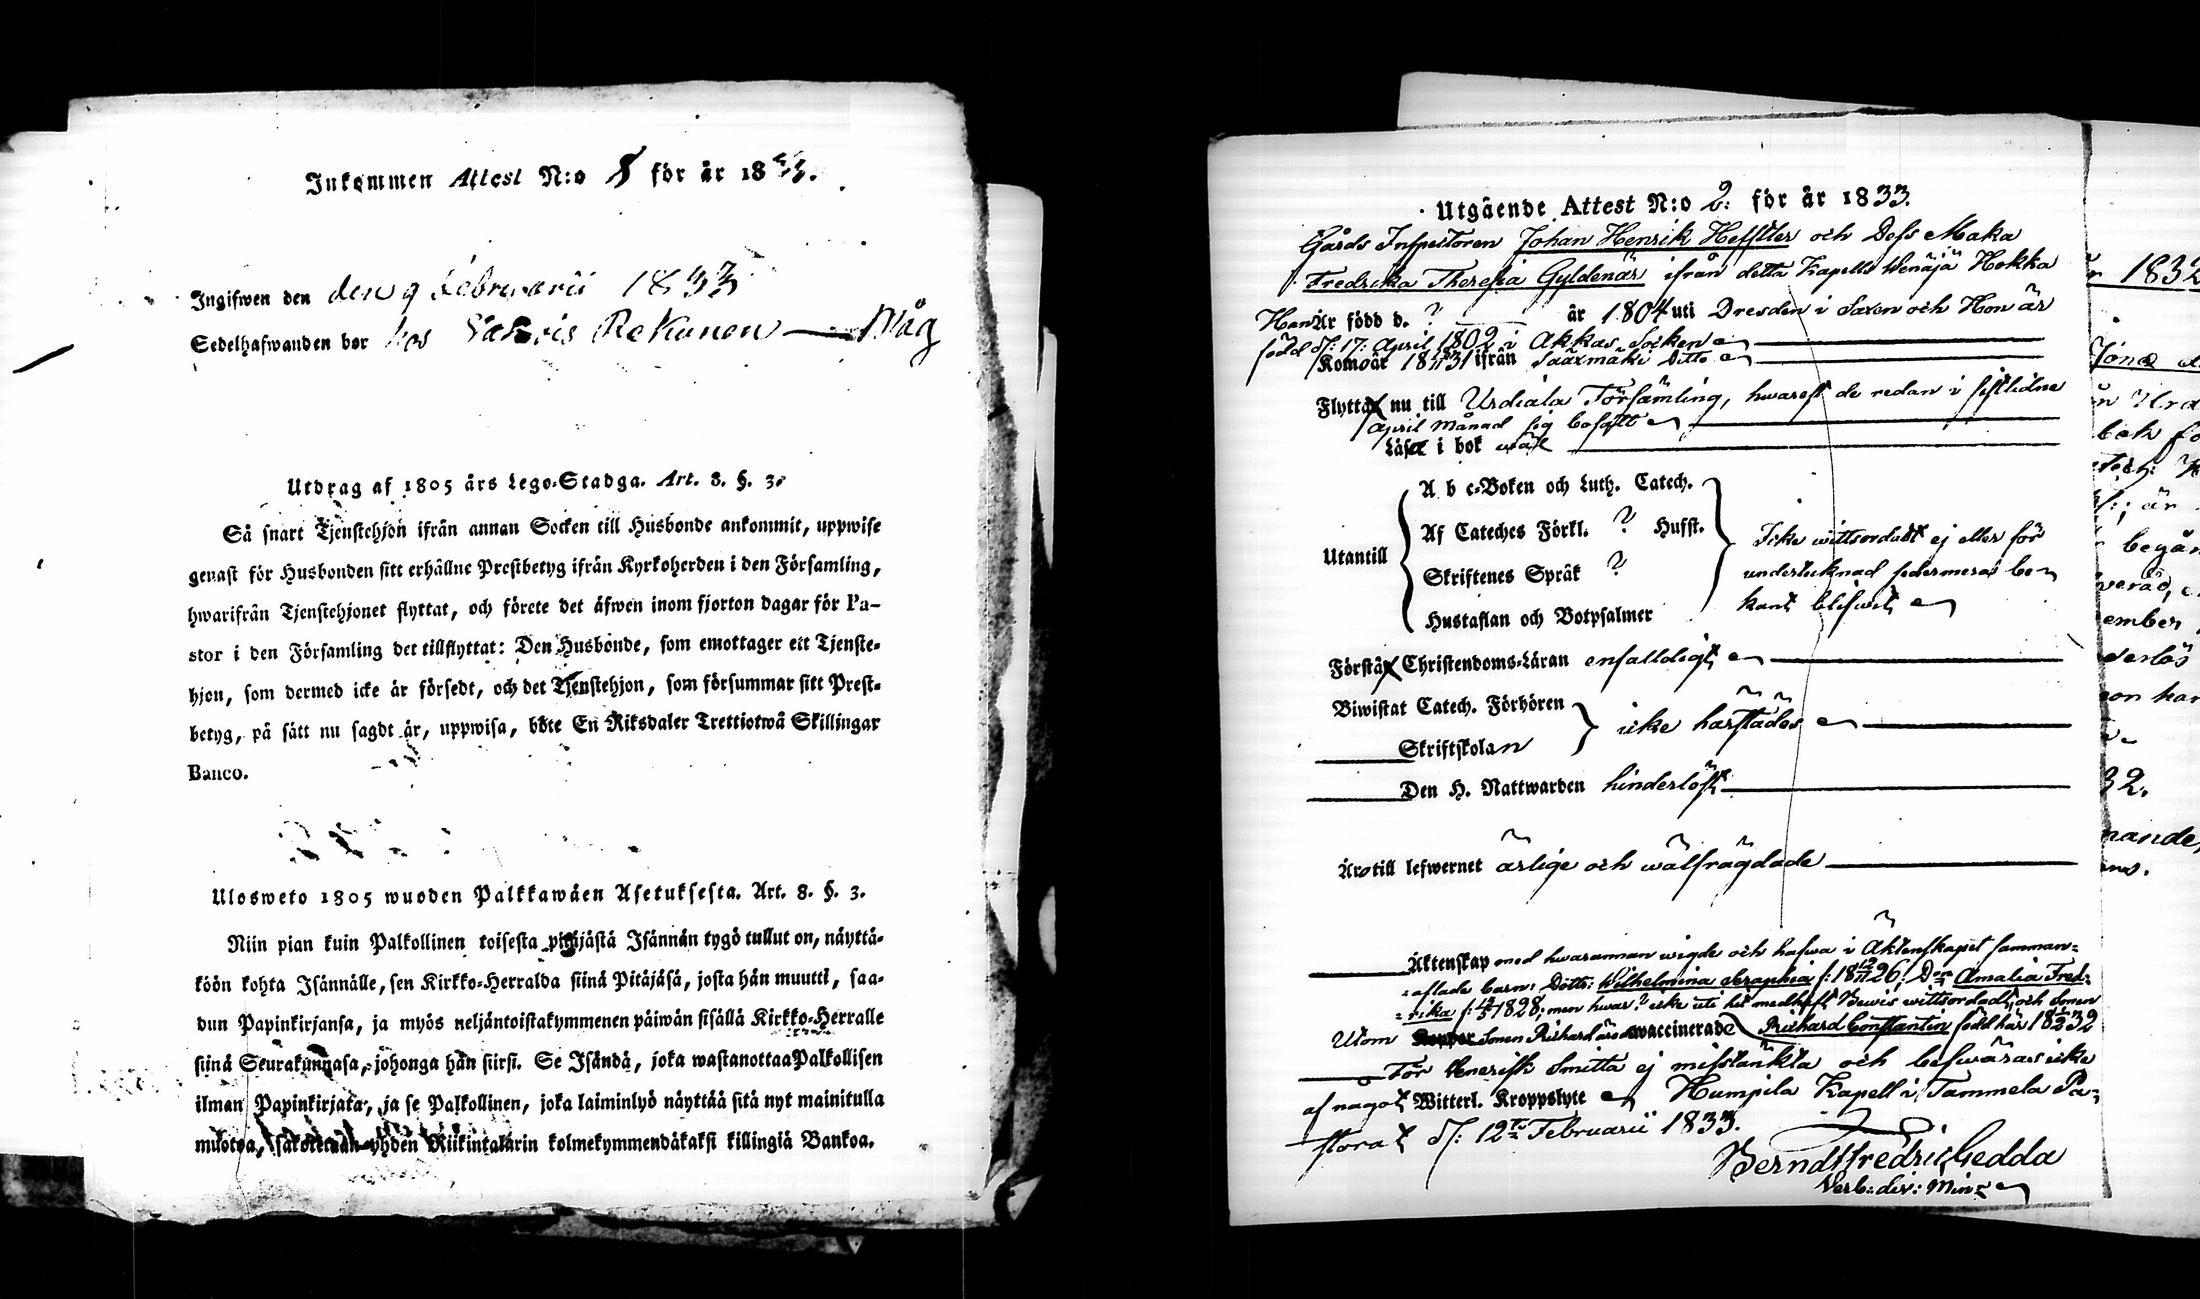 Inkommen Attest N:o 8 för år 1833.
Ingifwen den den 9 Februarii 1833
Sedelhafwanden bor hos Rekonen — Måg
Utdrag af 1805 års Lego-Stadga. Art. 8. §. 3.
Så snart Tjenstehjon ifrån annan Socken till Husbonde ankommit, uppwise
genast för Husbonden sitt erhållne Prestbetyg ifrån Kyrkoherden i den Församling,
hwarifrån Tjenstehjonet flyttat, och förete det äfwen inom fjorton dagar för Pa-
stor i den Församling det tillflyttat: Den Husbonde, som emottager ett Tjenste-
hjon, som dermed icke är försedt, och det Tjenstehjon, som försummar sitt Prest-
betyg, på sätt nu sagdt är, uppwisa, böte En Riksdaler Trettiotwå Skillingar
Banco.
Ulosweto 1805 wuoden Palkkawäen Asetuksesta. Art. 8. §. 3.
Niin pian kuin Palkollinen toisesta pitäjästä Isännän tygö tullut on, näyttä-
köön kohta Isännälle, sen Kirkko-Herralda siinä Pitäjäsä, josta hän muutti, saa-
dun Papinkirjansa, ja myös neljäntoistakymmenen päiwän sisällä Kirkko-Herralle
siinä Seurakunnasa, johonga hän siirsi. Se Isändä, joka wastanottaa Palkollisen
ilman Papinkirjata, ja se Palkollinen, joka laiminlyö näyttää sitä nyt mainitulla
muotoa, sakotetaan yhden Riikintalarin kolmekymmendäkaksi killingiä Bankoa.
Utgående Attest N:o 2: för år 1833.
Gårds Inspectoren Johan Henrik Heffler och Dess Maka
Fredrika Theresia Gyldenär ifrån detta Kapells Wenäjä Hokka
Han Är född d. ? år 1804 uti Dresden i Saxen och Hon är
född d: 17: April 1802 i Akkas Socken
Komo år 1831 ifrån Sääxmäki Ditto
Flytta nu till Urdiala Församling, hwarest de redan i sistlidne
April Månad sig befatt
Läsa i bok wäl
Utantill
A b c-Boken och Luth. Catech.
Af Cateches Förkl. ? Husst.
Skriftenes Språk ?
Hustaflan och Botpsalmer
Icke wittsordadt ej eller för
undertecknad sedermera be-
kant blifwit
Förstå Christendoms-Läran enfalldigt
Biwistat Catech. Förhören
Skriftskolan
icke härstädes
Den H. Nattwarden hinderlöst
Äro till lefwernet ärlige och wälfrägdade
Äktenskap med hwarannan wigde och hafwa i Äktenskapet samman-
aflade barn: Dottr: Wilhelmina Seraphia f: 18 26; Dr Amalia Fred-
rika f: 1828; men hwar? icke uti hit medhaft Bewis wittsordadt, och Sonen
Utom Sonen Richard äro waccinerade Richard Constantin född här 18 32
För Venerisk Smitta ej misstänkta och beswäras icke
af något Witterl. Kroppslyte Humpila Kapell i Tammela Pa-
storat d: 12te Februarii 1833.
Berndt Fredric Gedda
Verb: div: Min:
1832
Urd
begån
ember
32.
nande,